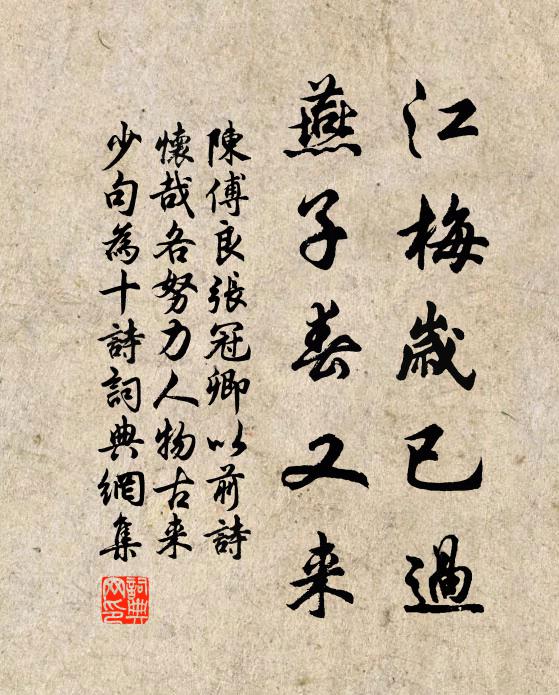 江梅歲已過
燕子春又来
陳傅良張冠卿以前詩
懷哉各努力人物古来
少句為十詩詞典網集
詞典網印